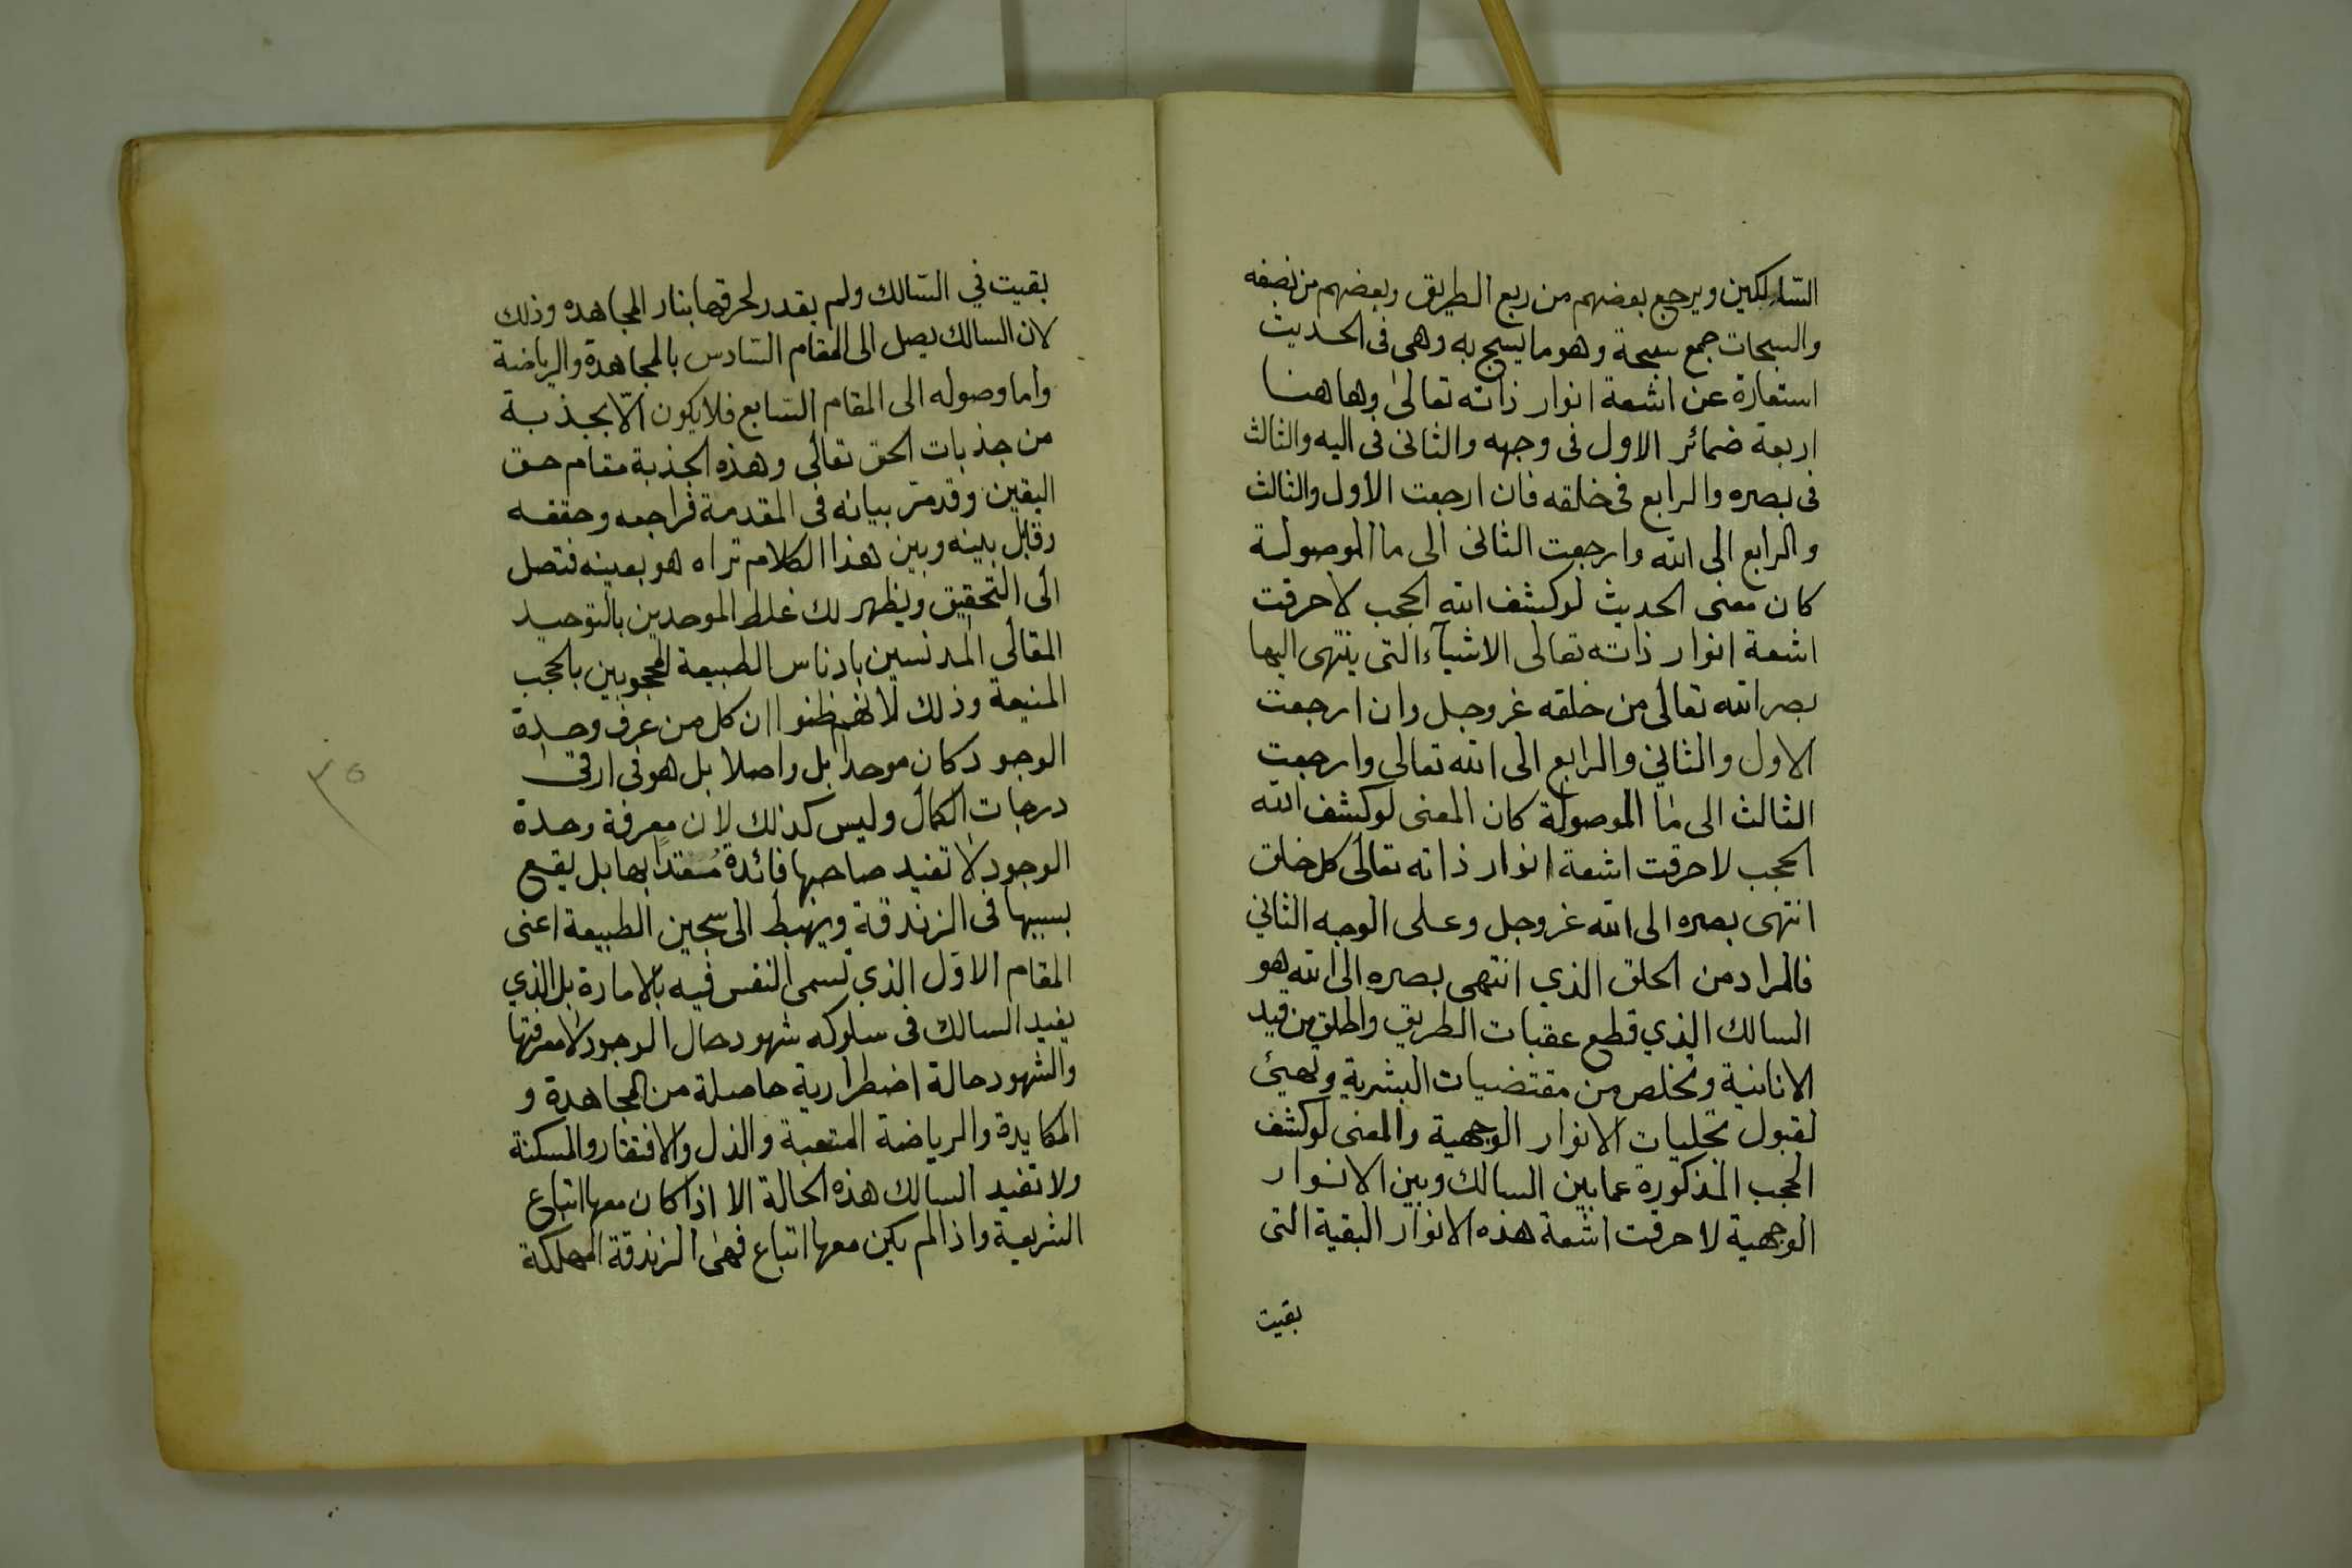 السالكين ويرجع بعضهم من ربع الطريق وبعضهم من نصفه
والسبحات جمع سبحة وهو ما يسبح به وهى فى الحديث
استعارة عن اشعة انوار ذاته تعالى وهاهنا
اربعة ضمائر الاول فى وجهه والثانى فى اليه والثالث
فى بصره والرابع فى خلقه فان ارجعت الاول والثالث
والرابع الى الله وارجعت الثانى الى ما الموصولة
كان معنى الحديث لو كشف الله الحجب لاحرقت
اشعة انوار ذاته تعالى الاشيآء التى ينتهى اليها
بصر الله تعالى من خلقه عز وجل وان ارجعت
الاول والثاني والرابع الى الله تعالى وارجعت
الثالث الى ما الموصولة كان المعنى لو كشف الله
الحجب لاحرقت اشعة انوار ذاته تعالى كل خلق
انتهى بصره الى الله عز وجل وعلى الوجه الثاني
فالمراد من الخلق الذي انتهى بصره الى الله هو
السالك الذي قطع عقبات الطريق واطلق من قيد
الانانية وتخلص من مقتضيات البشرية وتهيئ
لقبول تجليات الانوار الوجهية والمعنى لو كشف
الحجب المذكورة عما بين السالك وبين الانوار
الوجهية لاحرقت اشعة هذه الانوار البقية التى
بقيت
بقيت في السالك ولم يقدر لحرقها بنار المجاهده وذلك
لان السالك يصل الى المقام السادس بالمجاهدة والرياضة
واما وصوله الى المقام السابع فلا يكون الّا بجذبة
من جذبات الحق تعالى وهذه الجذبة مقام حق
اليقين وقد مرّ بيانه فى المقدمة فراجعه وحققه
وقابل بينه وبين هذا الكلام تراه هو بعينه فتصل
الى التحقيق ويظهر لك غلط الموحدين بالتوحيد
المقالى المدنسين بادناس الطبيعة المحجوبين بالحجب
المنيعة وذلك لانهم ظنوا ان كل من عرف وحدة
الوجود كان موحدا بل واصلا بل هو فى ارقى
درجات الكمال وليس كذلك لان معرفة وحدة
الوجود لا تفيد صاحبها فائدة مُعتدا بها بل يقع
بسببها فى الزندقة ويهبط الى سجين الطبيعة اعنى
المقام الاول الذي تسمى النفس فيه بالامارة بل الذي
يفيد السالك فى سلوكه شهود حال الوجود لا معرفتها
والشهود حالة اضطرارية حاصلة من المجاهدة و
المكابدة والرياضة المتعبة والذل والافتقار والمسكنة
ولا تفيد السالك هذه الحالة الا اذا كان معها اتباع
الشريعة واذا لم يكن معها اتباع فهى الزندقة المهلكة
٣٥